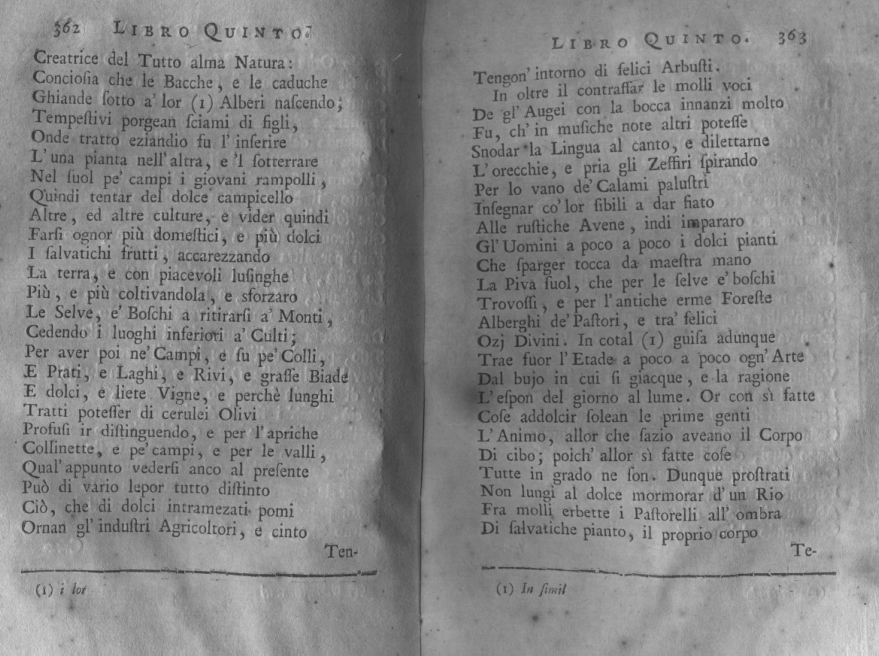 362 LIBRO QUINTO.
Creatrice del Tutto alma Natura:
Concioſia che le Bacche, e le caduche
Ghiande ſotto a' lor (1) Alberi naſcendo;
Tempeſtivi porgean ſciami di figli,
Onde tratto eziandio fu l' inſerire
L' una pianta nell' altra, e 'l ſotterrare
Nel ſuol pe' campi i giovani rampolli,
Quindi tentar del dolce campicello
Altre, ed altre culture, e vider quindi
Farſi ognor più domeſtici, e più dolci
I ſalvatichi frutti, accarezzando
La terra, e con piacevoli luſinghe
Più, e più coltivandola, e sforzaro
Le Selve, e' Boſchi a ritirarſi a' Monti,
Cedendo i luoghi inferiori a' Culti;
Per aver poi ne' Campi, e ſu pe' Colli,
E Prati, e Laghi, e Rivi, e graſſe Biade
E dolci, e liete Vigne, e perchè lunghi
Tratti poteſſer di cerulei Olivi
Profuſi ir diſtinguendo, e per l' apriche
Collinette, e pe' campi, e per le valli,
Qual' appunto vederſi anco al preſente
Può di vario lepor tutto diſtinto
Ciò, che di dolci intramezati pomi
Ornan gl' induſtri Agricoltori, e cinto
Ten-
(1) i lor
LIBRO QUINTO. 363
Tengon' intorno di felici Arbuſti.
In oltre il contraffar le molli voci
De gl' Augei con la bocca innanzi molto
Fu, ch' in muſiche note altri poteſſe
Snodar la Lingua al canto, e dilettarne
L' orecchie, e pria gli Zeffiri ſpirando
Per lo vano de' Calami paluſtri
Inſegnar co' lor ſibili a dar fiato
Alle ruſtiche Avene, indi impararo
Gl' Uomini a poco a poco i dolci pianti
Che ſparger tocca da maeſtra mano
La Piva ſuol, che per le ſelve e' boſchi
Trovoſſi, e per l' antiche erme Foreſte
Alberghi de' Paſtori, e tra' felici
Ozj Divini. In cotal (1) guiſa adunque
Trae fuor l' Etade a poco a poco ogn' Arte
Dal bujo in cui ſi giacque, e la ragione
L' eſpon del giorno al lume. Or con sì fatte
Coſe addolcir ſolean le prime genti
L' Animo, allor che ſazio aveano il Corpo
Di cibo; poich' allor sì fatte coſe
Tutte in grado ne ſon. Dunque proſtrati
Non lungi al dolce mormorar d' un Rio
Fra molli erbette i Paſtorelli all' ombra
Di ſalvatiche pianto, il proprio corpo
Te-
(1) In ſimil